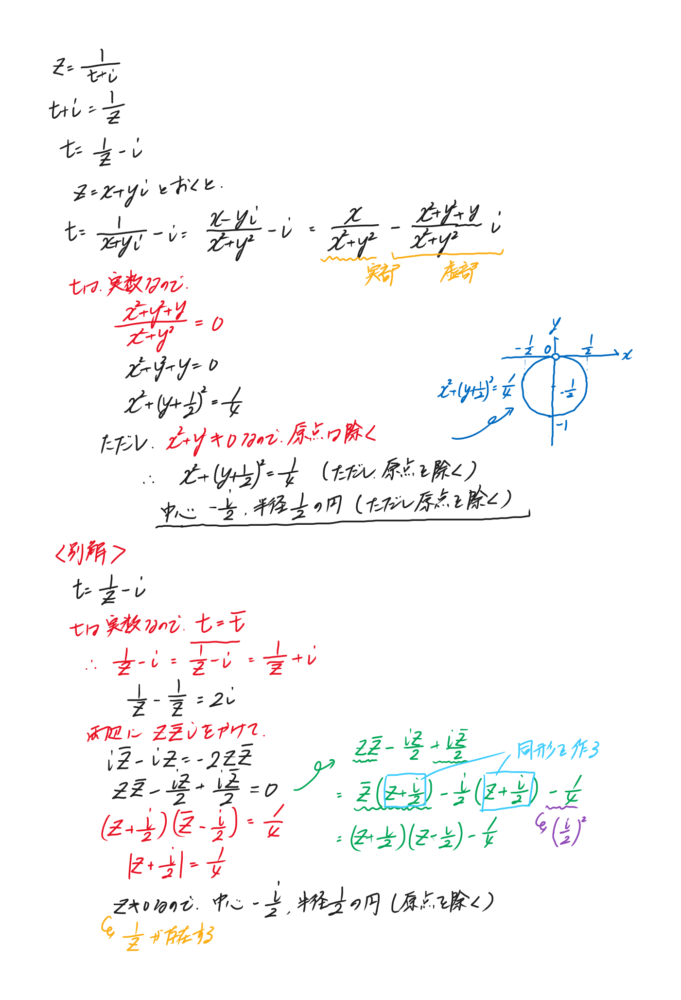 z = 1/(t+i)
t+i = 1/z
t = 1/z - i
z = x+yi とおくと.
t = 1/(x+yi) - i = (x-yi)/(x²+y²) - i = x/(x²+y²) - (x²+y²+y)/(x²+y²) i
実部 虚部
tは, 実数なので.
(x²+y²+y)/(x²+y²) = 0
x²+y²+y = 0
x²+(y+1/2)² = 1/4
ただし, x²+y²≠0なので, 原点は除く
∴ x²+(y+1/2)² = 1/4 (ただし, 原点を除く)
中心 -i/2, 半径 1/2 の円 (ただし原点を除く)
y
-1/2 0 1/2 x
x²+(y+1/2)² = 1/4
-1/2
-1
<別解>
t = 1/z - i
tは実数なので, t = t̄
∴ 1/z - i = \overline{1/z - i} = 1/z̄ + i
1/z - 1/z̄ = 2i
両辺に zz̄i をかけて.
iz̄ - iz = -2zz̄
zz̄ - iz/2 + iz̄/2 = 0
(z + i/2)(z̄ - i/2) = 1/4
|z + i/2| = 1/4
z≠0なので, 中心 -i/2, 半径 1/2 の円 (原点を除く)
1/z が存在する
zz̄ - iz/2 + iz̄/2
= z̄(z + i/2) - i/2(z + i/2) - 1/4
同形を作る
(i/2)²
= (z + i/2)(z - i/2) - 1/4